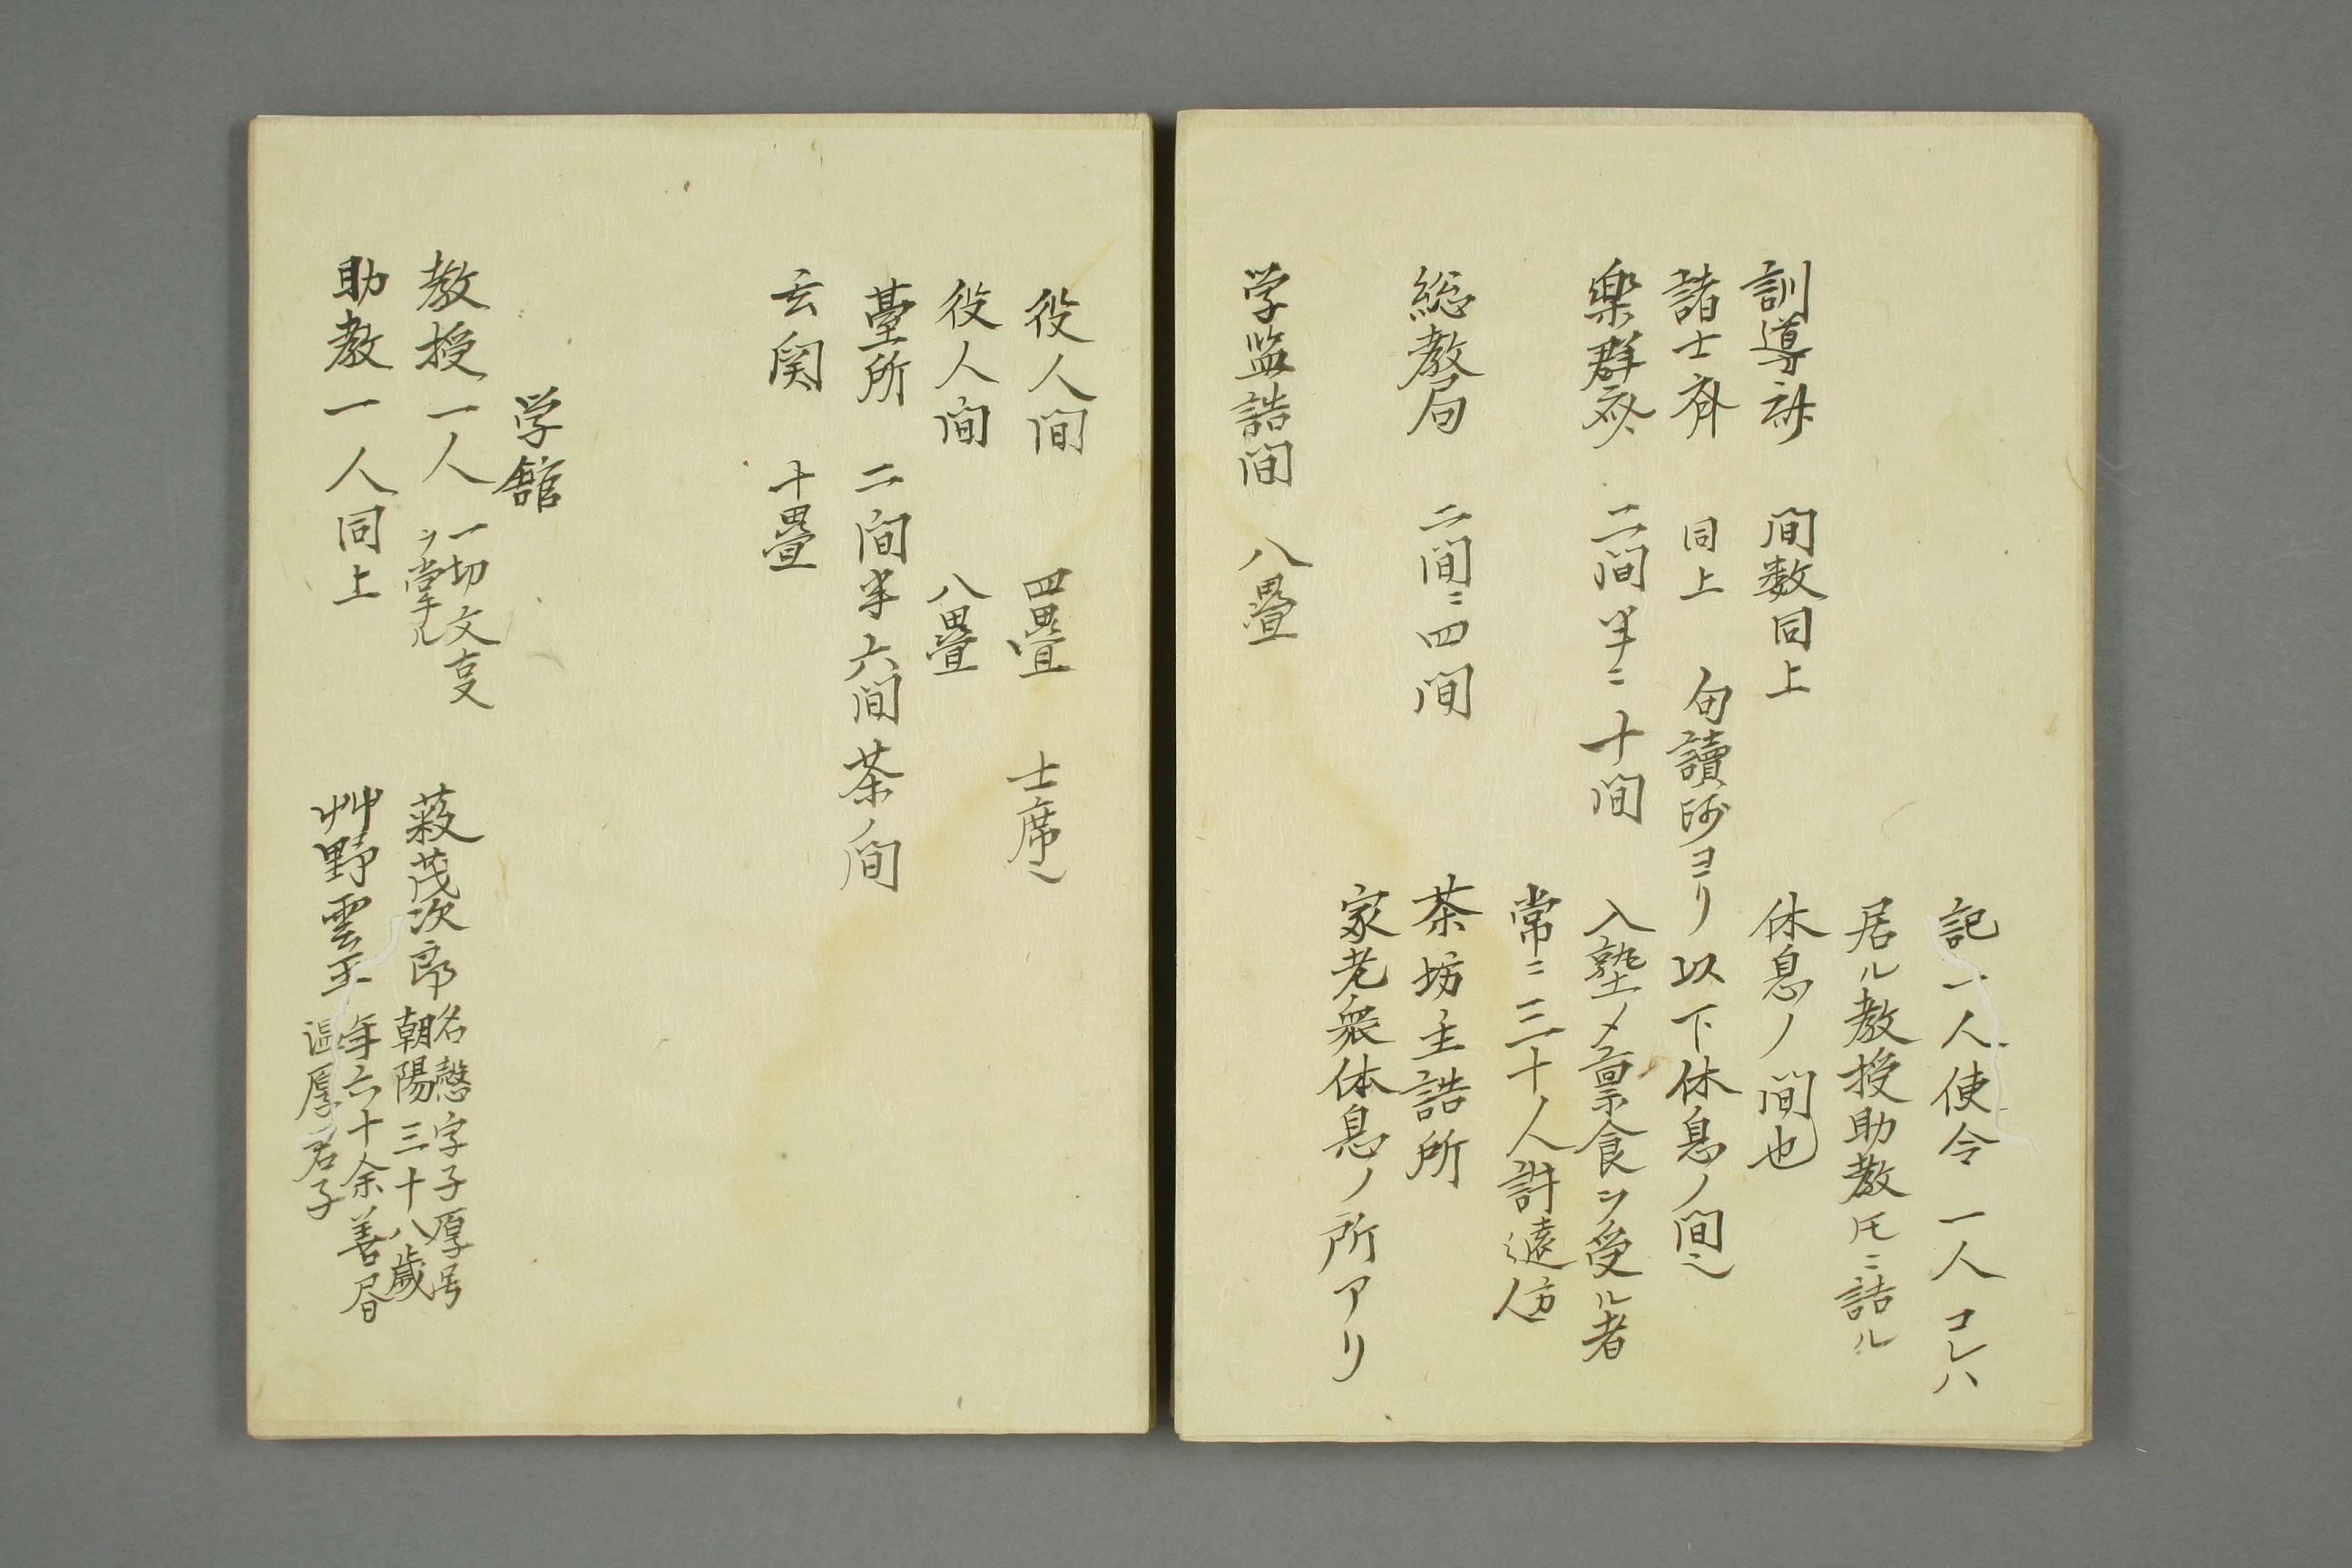 記一人使令一人コレハ
居ル教授助教ハ二詰ル
休息ノ間也
訓導斎　間数同上
諸士斉　同上　句讀師ヨリ以下休息ノ間也
楽群斎　二間半ニ十間　入塾〆稟食ヲ受ル者
常ニ三十人許遠方
総教局　二間ニ四間　茶坊主詰所
家老衆休息ノ所アリ
学監詰間　八疊
役人間　四疊　士席也
役人間　八疊
臺所　二間半六間　茶ノ間
玄関　十疊
学舘
教授一人　一切文事
ヲ掌ル　薮茂次郎　名愨字子厚号
朝陽三十八歳
助教一人同上　艸野雲平　年六十余善書
温厚君子